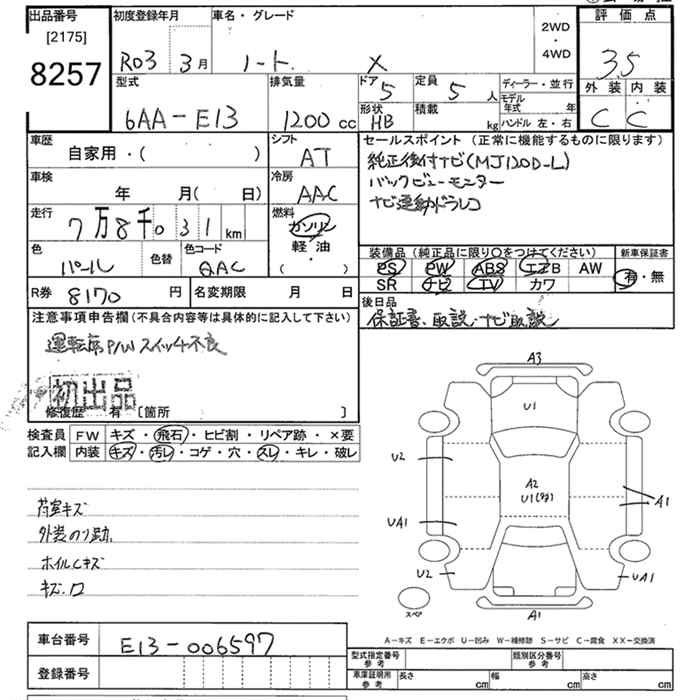 出品番号 初度登録年月 車名・グレード 2WD・4WD 評価点
[2175]
8257 R03 3月 ノート X 3.5
型式 排気量 ドア 5 定員 5人 ディーラー・並行 外装 内装
6AA-E13 1200cc 形状 HB 積載 kg モデル年式 年 ハンドル 左・右 C C
車歴 自家用・( ) シフト AT
セールスポイント (正常に機能するものに限ります)
純正後付ナビ(MJ120D-L)
バックビューモニター
ナビ連動ドラレコ
車検 年 月( 日) 冷房 AAC
走行 7万8千031km 燃料 ガソリン 軽・油 ( )
色 パール 色替 色コード QAC
装備品 (純正品に限り〇をつけてください) 新車保証書
PS PW ABS エアB AW 有・無
SR ナビ TV カワ
R券 8170円 名変期限 月 日
後日品
保証書、取説、ナビ取説
注意事項申告欄(不具合内容等は具体的に記入して下さい)
運転席P/Wスイッチ不良
初出品
修復歴 有 [箇所 ]
検査員 FW キズ・飛石・ヒビ割・リペア跡・×要
記入欄 内装 キズ・汚レ・コゲ・穴・スレ・キレ・破レ
荷室キズ
外装のり跡
ホイルCキズ
キズ.
A3
U1
U2
A2
U1(多)
A1
UA1
U2
UA1
スペア
A1
A-キズ E-エクボ U-凹み W-補修跡 S-サビ C-腐食 XX-交換済
車台番号 E13-006597
型式指定番号 参考 類別区分番号 参考
登録番号 車庫証明用 参考 長さ cm 幅 cm 高さ cm